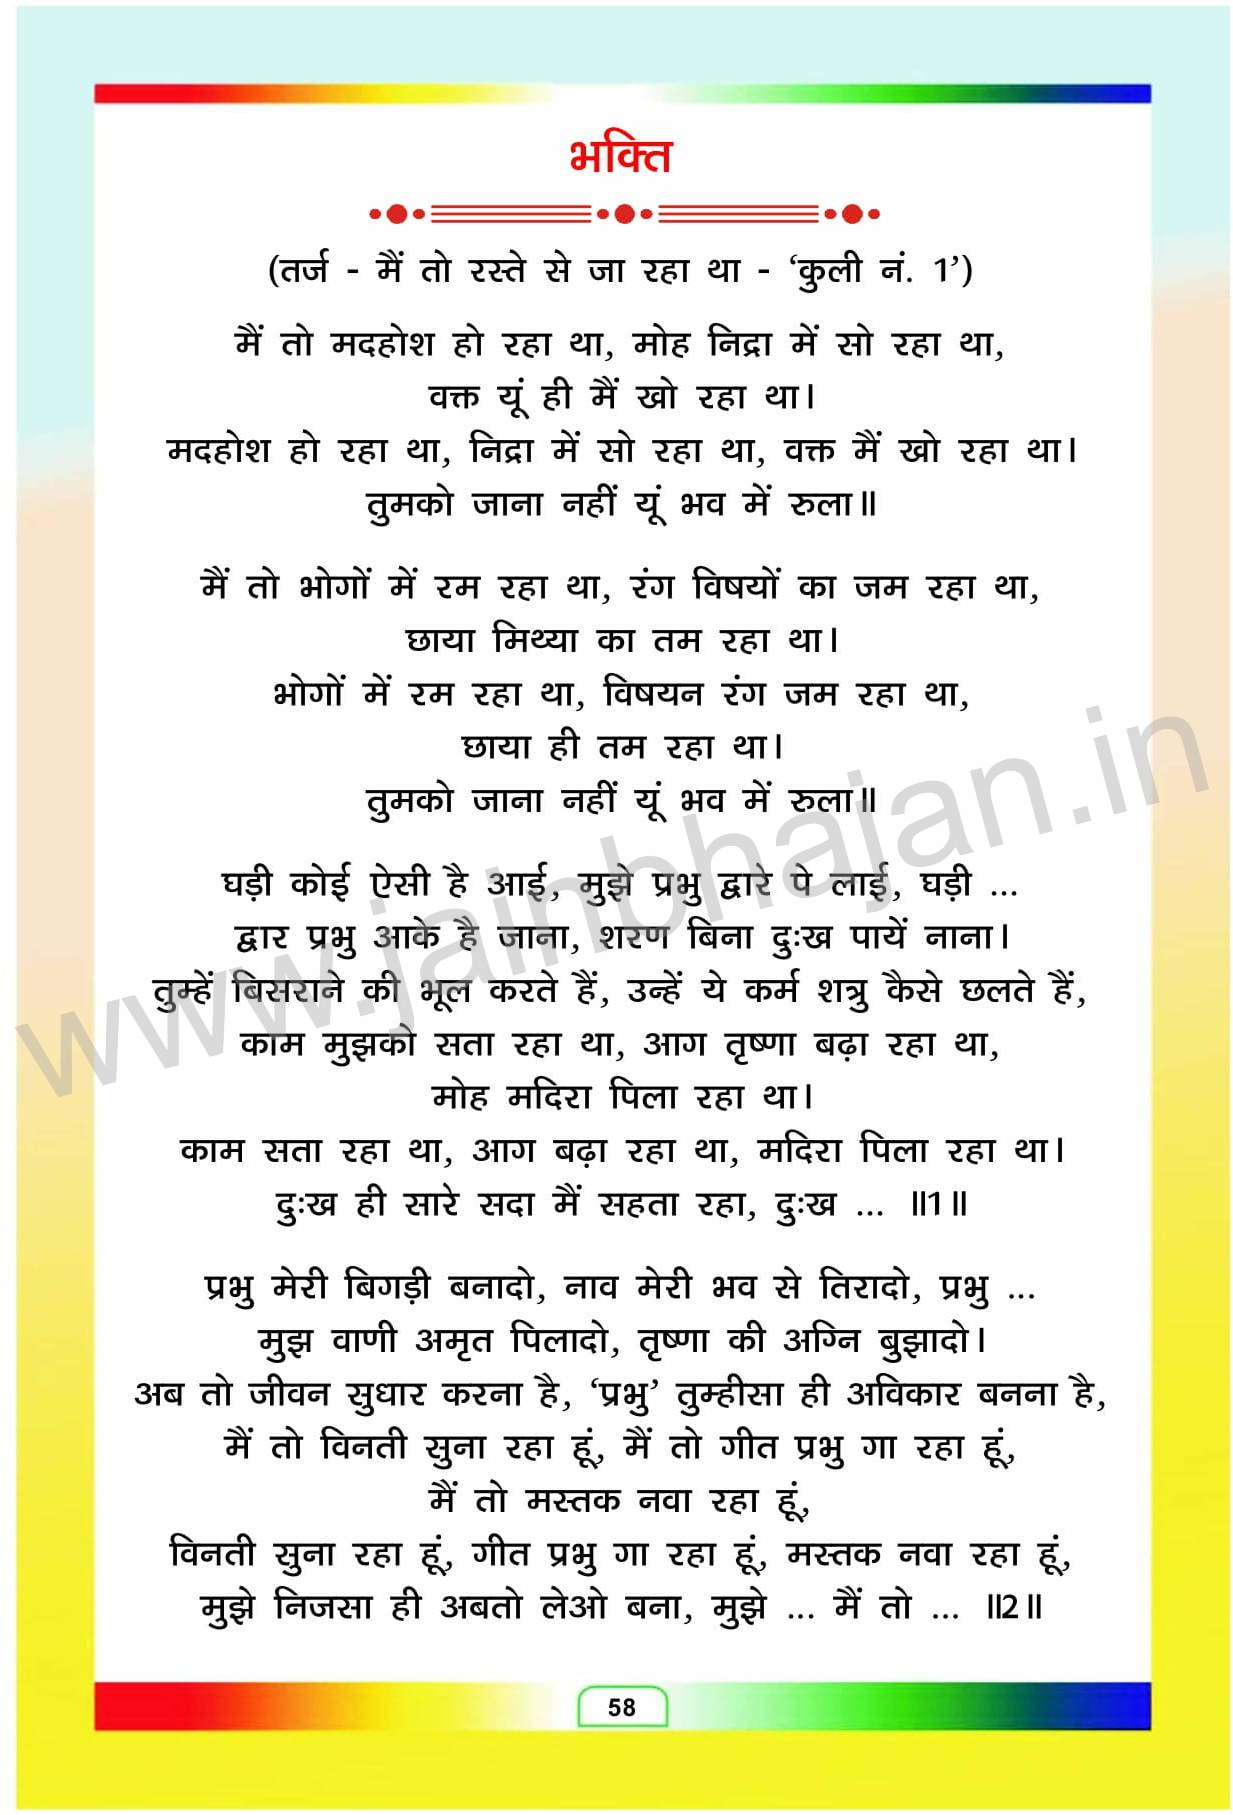 भक्ति
(तर्ज - मैं तो रस्ते से जा रहा था - ‘कुली नं. 1’)
मैं तो मदहोश हो रहा था, मोह निद्रा में सो रहा था,
वक्त यूं ही मैं खो रहा था।
मदहोश हो रहा था, निद्रा में सो रहा था, वक्त मैं खो रहा था।
तुमको जाना नहीं यूं भव में रुला॥
मैं तो भोगों में रम रहा था, रंग विषयों का जम रहा था,
छाया मिथ्या का तम रहा था।
भोगों में रम रहा था, विषयन रंग जम रहा था,
छाया ही तम रहा था।
तुमको जाना नहीं यूं भव में रुला॥
घड़ी कोई ऐसी है आई, मुझे प्रभु द्वारे पे लाई, घड़ी ...
द्वार प्रभु आके है जाना, शरण बिना दुःख पायें नाना।
तुम्हें बिसराने की भूल करते हैं, उन्हें ये कर्म शत्रु कैसे छलते हैं,
काम मुझको सता रहा था, आग तृष्णा बढ़ा रहा था,
मोह मदिरा पिला रहा था।
काम सता रहा था, आग बढ़ा रहा था, मदिरा पिला रहा था।
दुःख ही सारे सदा मैं सहता रहा, दुःख ... ॥1॥
प्रभु मेरी बिगड़ी बनादो, नाव मेरी भव से तिरादो, प्रभु ...
मुझ वाणी अमृत पिलादो, तृष्णा की अग्नि बुझादो।
अब तो जीवन सुधार करना है, ‘प्रभु’ तुम्हीसा ही अविकार बनना है,
मैं तो विनती सुना रहा हूं, मैं तो गीत प्रभु गा रहा हूं,
मैं तो मस्तक नवा रहा हूं,
विनती सुना रहा हूं, गीत प्रभु गा रहा हूं, मस्तक नवा रहा हूं,
मुझे निजसा ही अबतो लेओ बना, मुझे ... मैं तो ... ॥2॥
58
www.jainbhajan.in